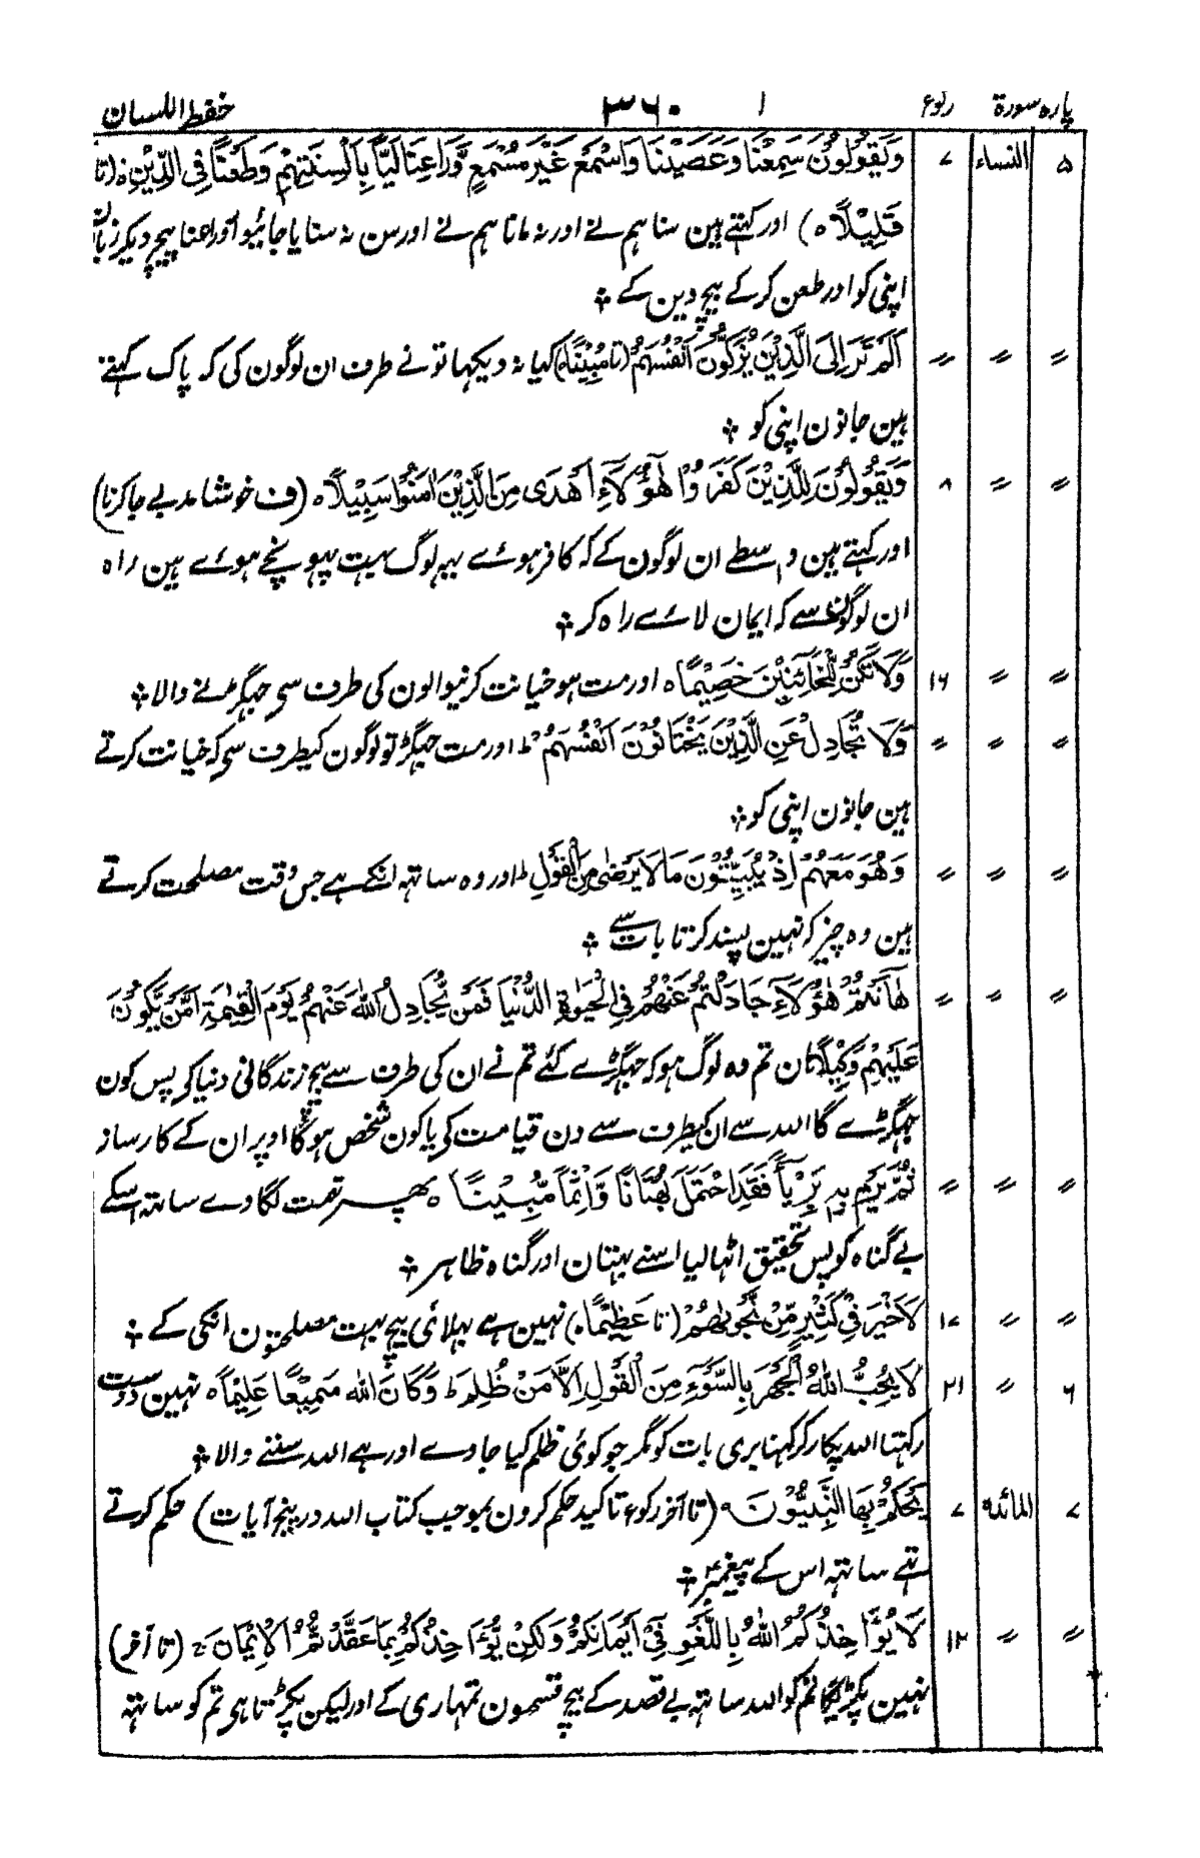 پارہ سورۃ رکوع ا ۳۶۰ حفظ اللسان
۵ النساء ۷ وَيَقُولُونَ سَمِعْنَا وَعَصَيْنَا وَاسْمَعْ غَيْرَ مُسْمَعٍ وَّرَاعِنَا لَيًّا بِاَلْسِنَتِهِمْ وَطَعْنًا فِي الدِّيْنِ ہ (تا
قَلِيْلًا ہ) اور کہتے ہین سنا ہم نے اور نہ مانا ہم نے اور سن نہ سنایا جائیو اور راعنا پیچ دیکر زبان
اپنی کو اور طعن کر کے بیچ دین کے ؞
〃 〃 〃 اَلَمْ تَرَ اِلَى الَّذِيْنَ يُزَكُّوْنَ اَنْفُسَهُمْ (تا مُبِيْنًا ہ) کیا نہ دیکہا تو نے طرف ان لوگون کی کہ پاک کہتے
ہین جانون اپنی کو ؞
〃 〃 ۸ وَيَقُوْلُوْنَ لِلَّذِيْنَ كَفَرُوْا هٰٓؤُلَاۤءِ اَهْدٰى مِنَ الَّذِيْنَ اٰمَنُوْا سَبِيْلًا ہ (ف خوشامد بے جا کرنا)
اور کہتے ہین واسطے ان لوگون کے کہ کافر ہوئے یہہ لوگ بہت پہونچے ہوئے ہین راہ
ان لوگون سے کہ ایمان لائے راہ کر ؞
〃 〃 ۱۶ وَلَا تَكُنْ لِّلْخَآئِنِيْنَ خَصِيْمًا ہ اور مت ہو خیانت کرنیوالون کی طرف سی جہگڑنے والا ؞
〃 〃 〃 وَلَا تُجَادِلْ عَنِ الَّذِيْنَ يَخْتَانُوْنَ اَنْفُسَهُمْ ط اور مت جہگڑ تو لوگون کیطرف سی کہ خیانت کرتے
ہین جانون اپنی کو ؞
〃 〃 〃 وَهُوَ مَعَهُمْ اِذْ يُبَيِّتُوْنَ مَا لَا يَرْضٰى مِنَ الْقَوْلِ ط اور وہ ساتہہ انکے ہے جس وقت مصلحت کرتے
ہین وہ چیز کہ نہین پسند کرتا بات سے ؞
〃 〃 〃 هٰۤاَنْتُمْ هٰٓؤُلَاۤءِ جَادَلْتُمْ عَنْهُمْ فِي الْحَيٰوةِ الدُّنْيَا فَمَنْ يُّجَادِلُ اللّٰهَ عَنْهُمْ يَوْمَ الْقِيٰمَةِ اَمَّنْ يَّكُوْنُ
عَلَيْهِمْ وَكِيْلًا ہان تم وہ لوگ ہو کہ جہگڑے کئے تم نے ان کی طرف سے بیچ زندگانی دنیا کی پس کون
جہگڑے گا اللہ سے ان کیطرف سے دن قیامت کی یا کون شخص ہوگا اوپر ان کے کارساز
〃 〃 〃 ثُمَّ يَرْمِ بِهٖ بَرِيْٓـًٔا فَقَدِ احْتَمَلَ بُهْتَانًا وَّاِثْمًا مُّبِيْنًا ہ پھر تہمت لگا دے ساتہہ اسکے
بے گناہ کو پس تحقیق اٹہا لیا اسنے بہتان اور گناہ ظاہر ؞
〃 〃 ۱۷ لَا خَيْرَ فِيْ كَثِيْرٍ مِّنْ نَّجْوٰىهُمْ (تا عَظِيْمًا ہ) نہین ہے بہلائی بیچ بہت مصلحتون انکی کے ؞
۶ 〃 ۲۱ لَا يُحِبُّ اللّٰهُ الْجَهْرَ بِالسُّوْٓءِ مِنَ الْقَوْلِ اِلَّا مَنْ ظُلِمَ ط وَكَانَ اللّٰهُ سَمِيْعًا عَلِيْمًا ہ نہین دوست
رکہتا اللہ پکار کر کہنا بری بات کو مگر جو کوئی ظلم کیا جاوے اور ہے اللہ سننے والا ؞
۷ المائدہ ۷ يَحْكُمُ بِهَا النَّبِيُّوْنَ ہ (تا آخر رکوع تاکید حکم کرون بموجب کتاب اللہ در پنج آیات) حکم کرتے
تہے ساتہہ اس کے پیغمبر ؞
〃 〃 ۱۲ لَا يُؤَاخِذُكُمُ اللّٰهُ بِاللَّغْوِ فِيْٓ اَيْمَانِكُمْ وَلٰكِنْ يُّؤَاخِذُكُمْ بِمَا عَقَّدْتُّمُ الْاِيْمَانَ ج (تا آخر)
نہین پکڑیگا تم کو اللہ ساتہہ بے قصد کے بیچ قسمون تمہاری کے اور لیکن پکڑتا ہی تم کو ساتہہ